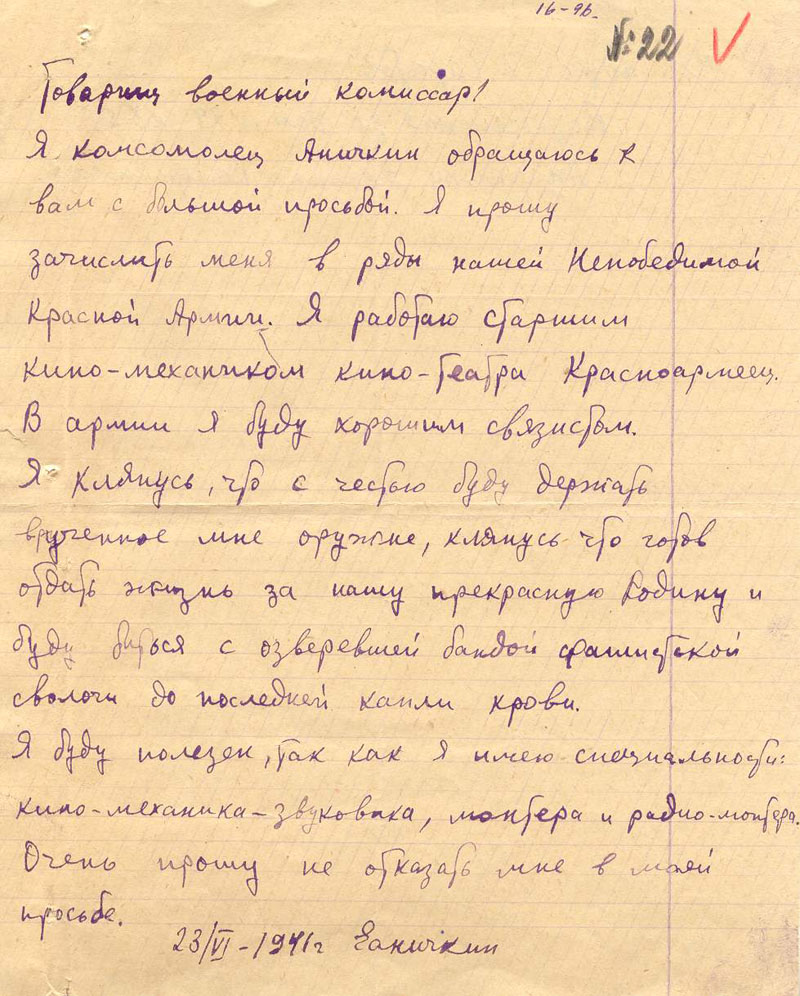 16-96.
№ 22
Товарищ военный комиссар!
Я комсомолец Аничкин обращаюсь к
вам с большой просьбой. Я прошу
зачислить меня в ряды нашей Непобедимой
Красной Армии. Я работаю старшим
кино-механиком кино-театра Красноармеец.
В армии я буду хорошим связистом.
Я клянусь, что с честью буду держать
врученное мне оружие, клянусь что готов
отдать жизнь за нашу прекрасную Родину и
буду биться с озверевшей бандой фашистской
сволочи до последней капли крови.
Я буду полезен, так как я имею специальности:
кино-механика-звуковика, монтера и радио-монтера.
Очень прошу не отказать мне в моей
просьбе.
23/VI-1941г Еаничкин